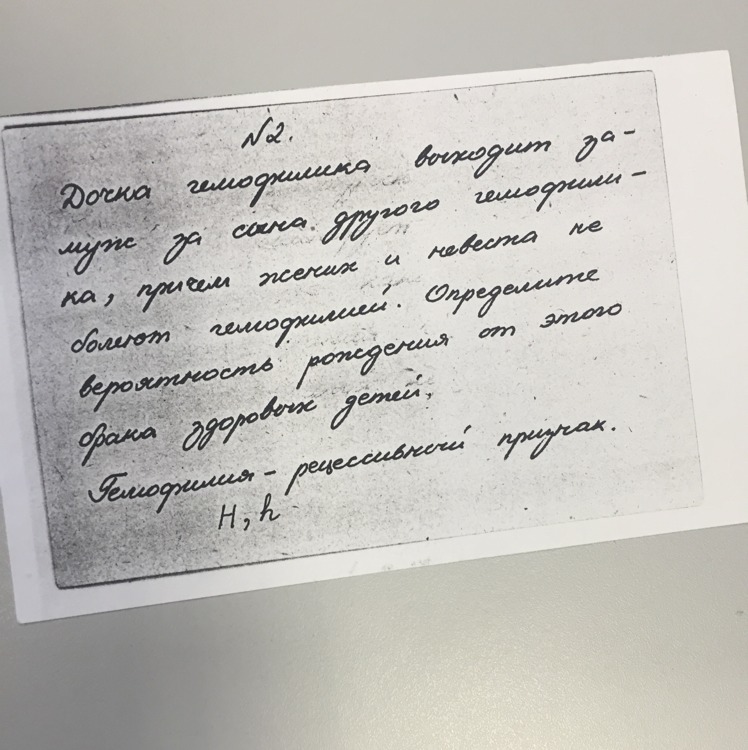 №2.
Дочка гемофилика выходит за-
муж за сына другого гемофили-
ка, причем жених и невеста не
болеют гемофилией. Определите
вероятность рождения от этого
брака здоровых детей.
Гемофилия - рецессивный признак.
H, h